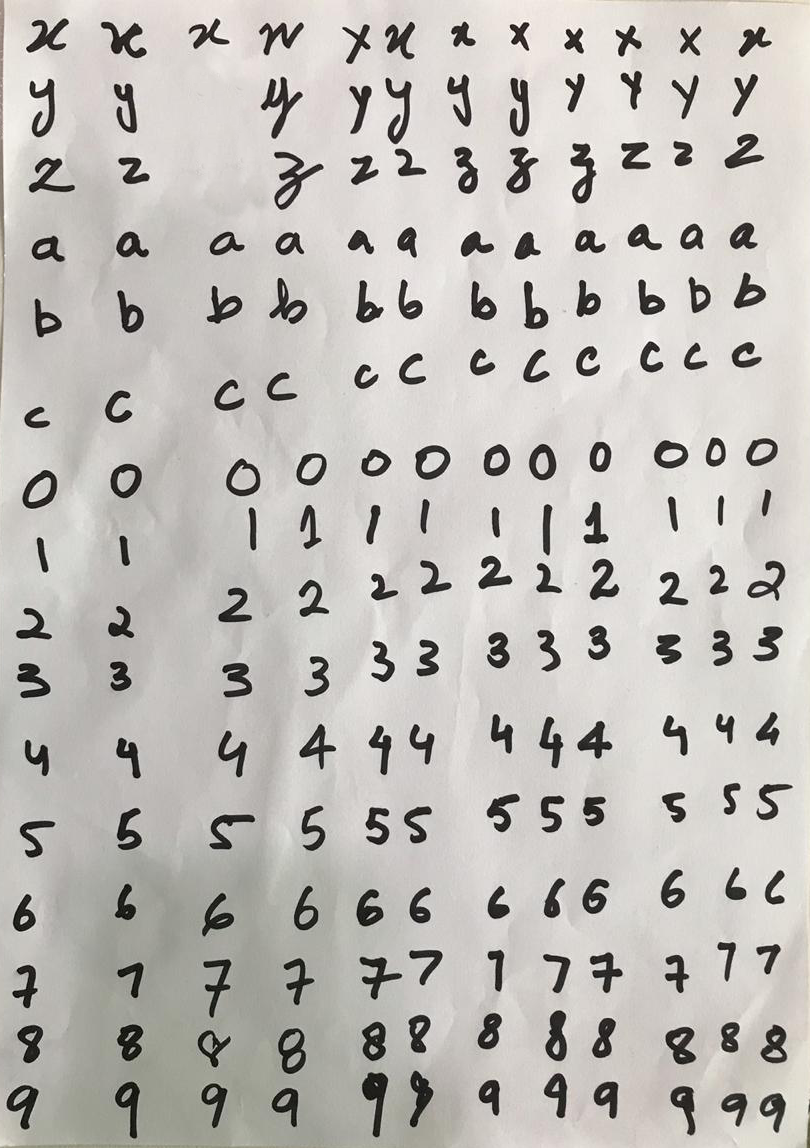 x x x x x x x x x x x x
y y y y y y y y y y y
z z z z z z z z z z z
a a a a a a a a a a a a
b b b b b b b b b b b b
c c c c c c c c c c c c
0 0 0 0 0 0 0 0 0 0 0 0
1 1 1 1 1 1 1 1 1 1 1 1
2 2 2 2 2 2 2 2 2 2 2 2
3 3 3 3 3 3 3 3 3 3 3 3
4 4 4 4 4 4 4 4 4 4 4 4
5 5 5 5 5 5 5 5 5 5 5 5
6 6 6 6 6 6 6 6 6 6 6 6
7 7 7 7 7 7 7 7 7 7 7 7
8 8 8 8 8 8 8 8 8 8 8 8
9 9 9 9 9 9 9 9 9 9 9 9